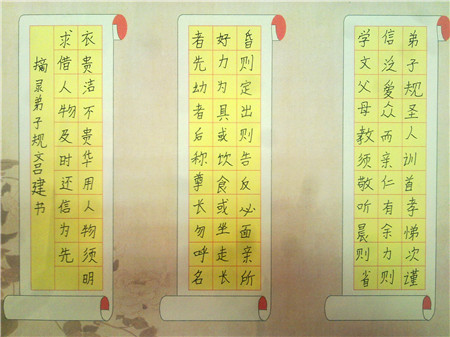 弟子规圣人训首孝悌次谨
信泛爱众而亲仁有余力则
学文父母教须敬听晨则省
昏则定出则告反必面亲所
好力为具或饮食或坐走长
者先幼者后称尊长勿呼名
衣贵洁不贵华用人物须明
求借人物及时还信为先
摘录弟子规文吕建书